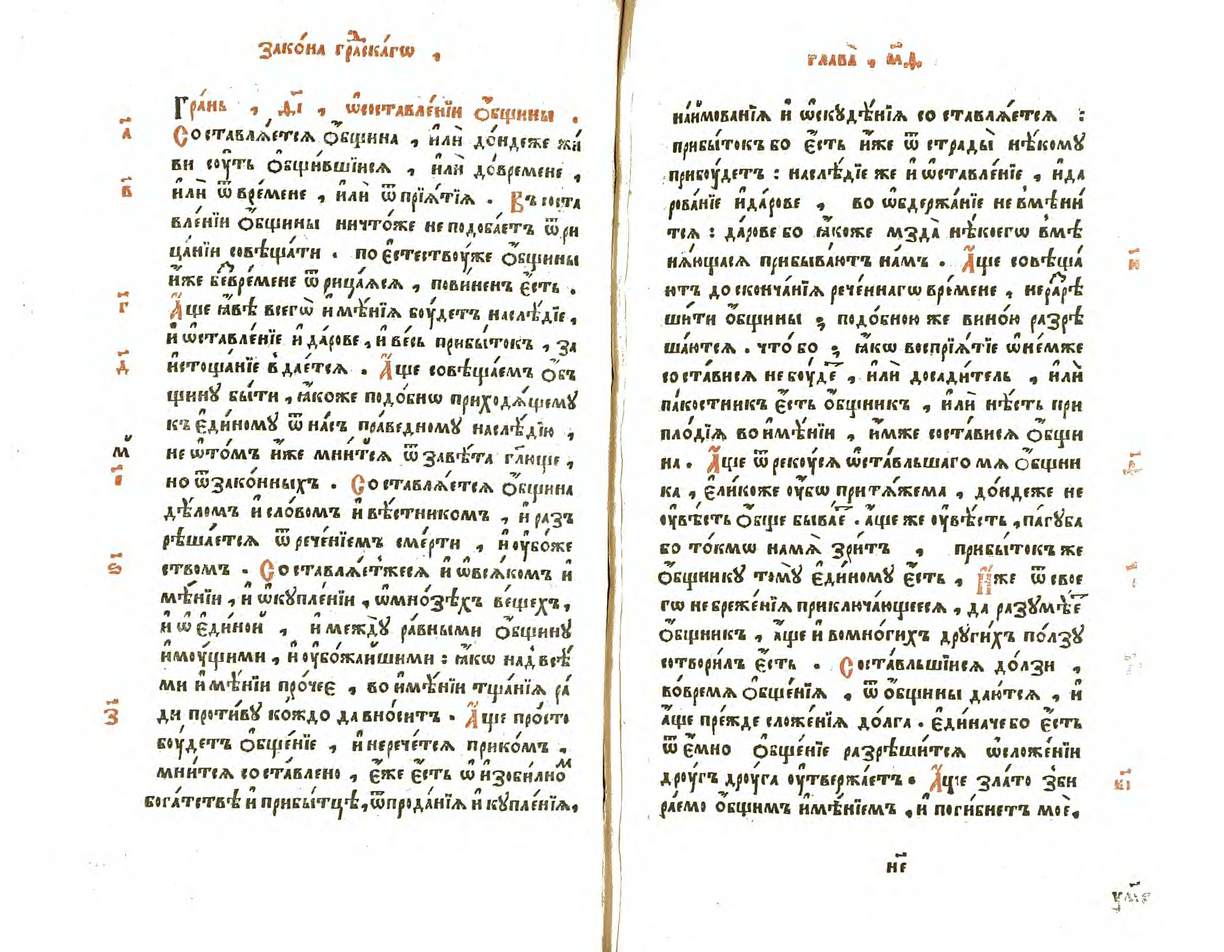 Зако́на гра́дскагѡ ,
Гра́нь , д҃і , ѡ҆составле́нїи ѻ҆́бщины .
а҃
Составлѧ́етсѧ ѻ҆́бщина , и҆лѝ до́ндеже жи́
ви сꙋ́ть ѻ҆бщи́вшїисѧ , и҆лѝ до́времене ,
в҃
и҆лѝ ѿ вре́мене , и҆лѝ ѿпрїѧ́тїѧ . Въ соста
вле́нїи ѻ҆́бщины ничто́же не подоба́етъ ѿри
ца́нїи совѣща́ти . по є҆стествоу́же ѻ҆́бщины
и҆́же беⷥвре́мене ѿ рица́ѧсѧ , пови́ненъ є҆́сть .
г҃
А҆́ще ꙗ҆́вѣ всегѡ̀ и҆мѣ́нїѧ бо́удетъ наслѣ́дїе ,
и҆ ѡ҆ставле́нїе и҆ да́рове , и҆ весь прибы́токъ , за
д҃
и҆стоща́нїе в да́етсѧ . А҆́ще совѣща́емъ ѻ҆́б
щину бы́ти , ꙗ҆́коже подо́бнѡ приходѧ́щему
къ є҆ди́ному ѿ на́съ пра́ведному наслѣ́дїю ,
м
не ѡ҆то́мъ и҆́же мни́тсѧ ѿ завѣ́та гл҃юще ,
є҃
но ѿзако́нныхъ . Составлѧ́етсѧ ѻ҆́бщина
дѣ́ломъ и҆ сло́вомъ и҆ вѣ́стникомъ , и҆ раз
рѣша́етсѧ ѿ рече́нїемъ сме́рти , и҆ оу҆бо́же
ѕ҃
ствомъ . Составлѧ́етжесѧ и҆ ѡ҆всѧ́комъ и҆
мѣ́нїи , и҆ ѡ҆купле́нїи , ѡ҆мно́зѣхъ ве́щехъ ,
и҆ ѡ҆ є҆ди́нои , и҆ между̀ ра́вными ѻ҆́бщину
и҆моу́щими , и҆ оу҆бо́жаишими : ꙗ҆́кѡ над всѣ́
ми и҆мѣ́нїи про́чеє , во и҆мѣ́нїи тща́нїѧ ра́
з҃
ди проти́ву ко́ждо да вно́ситъ . А҆́ще про́сто
бо́удетъ ѻ҆бще́нїе , и҆ нерече́тсѧ прико́мъ .
мни́тсѧ со ста́влено , є҆́же є҆́сть ѡ҆ и҆зоби́лноⷨ
бога́тствѣ и҆ прибы́тцѣ , ѿпрода́нїѧ и҆ купле́нїѧ ,
глава̀ , м҃д ,
наи҆мова́нїѧ и҆ ѡ҆скудѣ́нїѧ со ставлѧ́етсѧ :
прибы́токъ бо є҆́сть и҆́же ѿ страды̀ нѣ́кому
прибоу́детъ : наслѣ́дїе же и҆ ѡ҆ставле́нїе , и҆да
рова́нїе и҆да́рове , во ѡ҆бдержа́нїе не вмѣни́
тсѧ : да́рове бо ꙗ҆́коже мзда̀ нѣ́коегѡ вмѣ
и҃
нѧ́ющасѧ прибыва́ютъ на́мъ . А҆́ще совѣща́
ютъ до сконча́нїѧ рече́ннагѡ вре́мене , не раⷥрѣ
ши́ти ѻ҆́бщины ; подо́бною же вино́ю разрѣ
ша́ютсѧ . что́ бо ; ꙗ҆́кѡ воспрїѧ́тїе ѡ҆не́мже
со ста́висѧ не боу́деⷮ , и҆лѝ досади́тель , и҆лѝ
па́костникъ є҆́сть ѻ҆́бщникъ , и҆лѝ нѣ́сть при
пло́дїѧ во и҆мѣ́нїи , и҆́мже соста́висѧ ѻ҆́бщи
на . А҆́ще ѿ реку́сѧ ѡ҆ста́вльшаго мѧ ѻ҆́бщни
ка , є҆ли́коже оу҆́бѡ притѧ́жема , до́ндеже не
оу҆вѣ́сть ѻ҆́бще быва́еⷮ . а҆́ще же оу҆вѣ́сть , па́губа
бо то́кмѡ на мѧ̀ зри́тъ , прибы́токъ же
ѻ҆́бщнику тому̀ є҆ди́ному є҆́сть , И҆́же ѿ свое
гѡ не бреже́нїѧ приключа́ющеесѧ , да разумѣ́еⷮ
ѻ҆́бщникъ , а҆́ще и҆ вомно́гихъ други́хъ по́лзу
сотвори́лъ є҆́сть . Соста́вльшїисѧ до́лзи ,
во́времѧ ѻ҆бще́нїѧ , ѿ ѻ҆́бщины даю́тсѧ , и҆
а҆́ще пре́жде сложе́нїѧ до́лга . є҆ди́наче бо є҆́сть
ѿ є҆́мно ѻ҆бще́нїе разрѣши́тсѧ ѡ҆сложе́нїи
дроу́гъ дроу́га оу҆твержа́етъ . А҆́ще зла́то зби
в҃і
ра́емо ѻ҆́бщимъ и҆мѣ́нїемъ , и҆ поги́бнетъ моѐ ,
н҃є